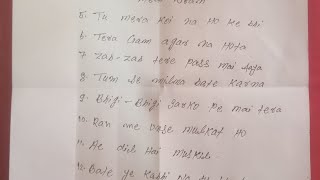 5. Tu mera koi na ho ke bhi
6. Tera Gam agar na hota
7. Zab-zab tere pass mai aya
8. Tum se milna bate karna
9. Bhigi-Bhigi sarko pe mai tera
10. Ran me
11. Ae dil hai muskil
12. Bate ye kabhi na